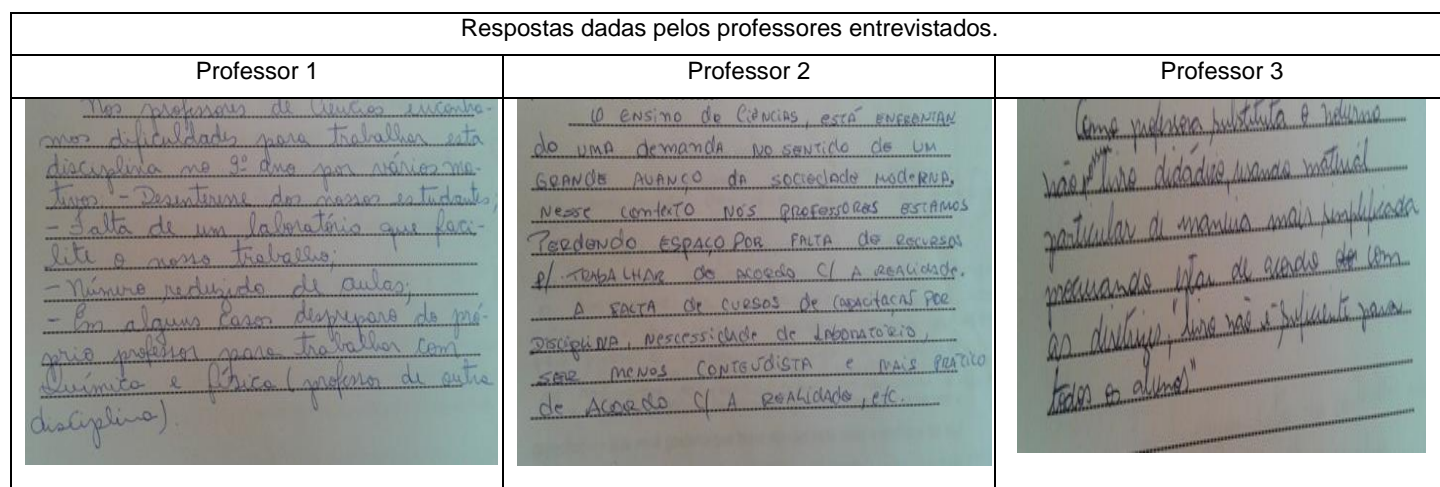 Respostas dadas pelos professores entrevistados.
Professor 1
Professor 2
Professor 3
Nos professores de Ciências encontra-
mos dificuldades para trabalhar esta
disciplina no 9º ano por vários mo-
tivos. - Desinterense dos nossos estudantes;
- Falta de um laboratório que faci-
lite o nosso trabalho;
- Número reduzido de aulas;
- Em alguns casos despreparo do pró-
prio professor para trabalhar com
Química e física (professor de outra
disciplina).
O ENSINO de CIÊNCIAS, ESTÁ ENFRENTAN
do UMA demanda NO SENTIDO de UM
GRANDE AVANÇO da SOCIEDADE MODERNA.
Nesse contexto NÓS PROFESSORES ESTAMOS
Perdendo ESPAÇO POR FALTA de RECURSOS
p/ TRABALHAR de ACORDO C/ A REALIDADE.
A FALTA de CURSOS de CAPACITAÇÃO POR
DISCIPLINA, NESCESSIDADE de LABORATÓRIO,
SER MENOS CONTEUDISTA e MAIS PRÁTICO
de Acordo C/ A REALIDADE, etc.
Como professora substituta o noturno
não livro didádico, usando material
particular de maneira mais simplificada
procurando estar de acordo com
"livro não é suficiente para
todos os alunos"